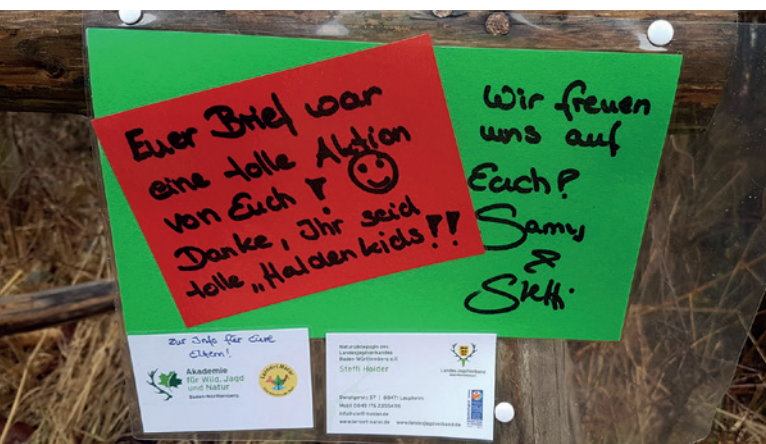 Euer Brief war
eine tolle Aktion
von Euch!
Danke, Ihr seid
tolle „Haldenkids"!!
Wir freuen
uns auf
Euch!
Samy
&
Steffi
zur Info für Eure
Eltern!
Akademie
für Wild, Jagd
und Natur
Baden-Württemberg
Naturpädagogin des
Landesjagdverbandes
Baden-Württemberg e.V.
Steffi Haider
Landesjagdverband
88471 Laupheim